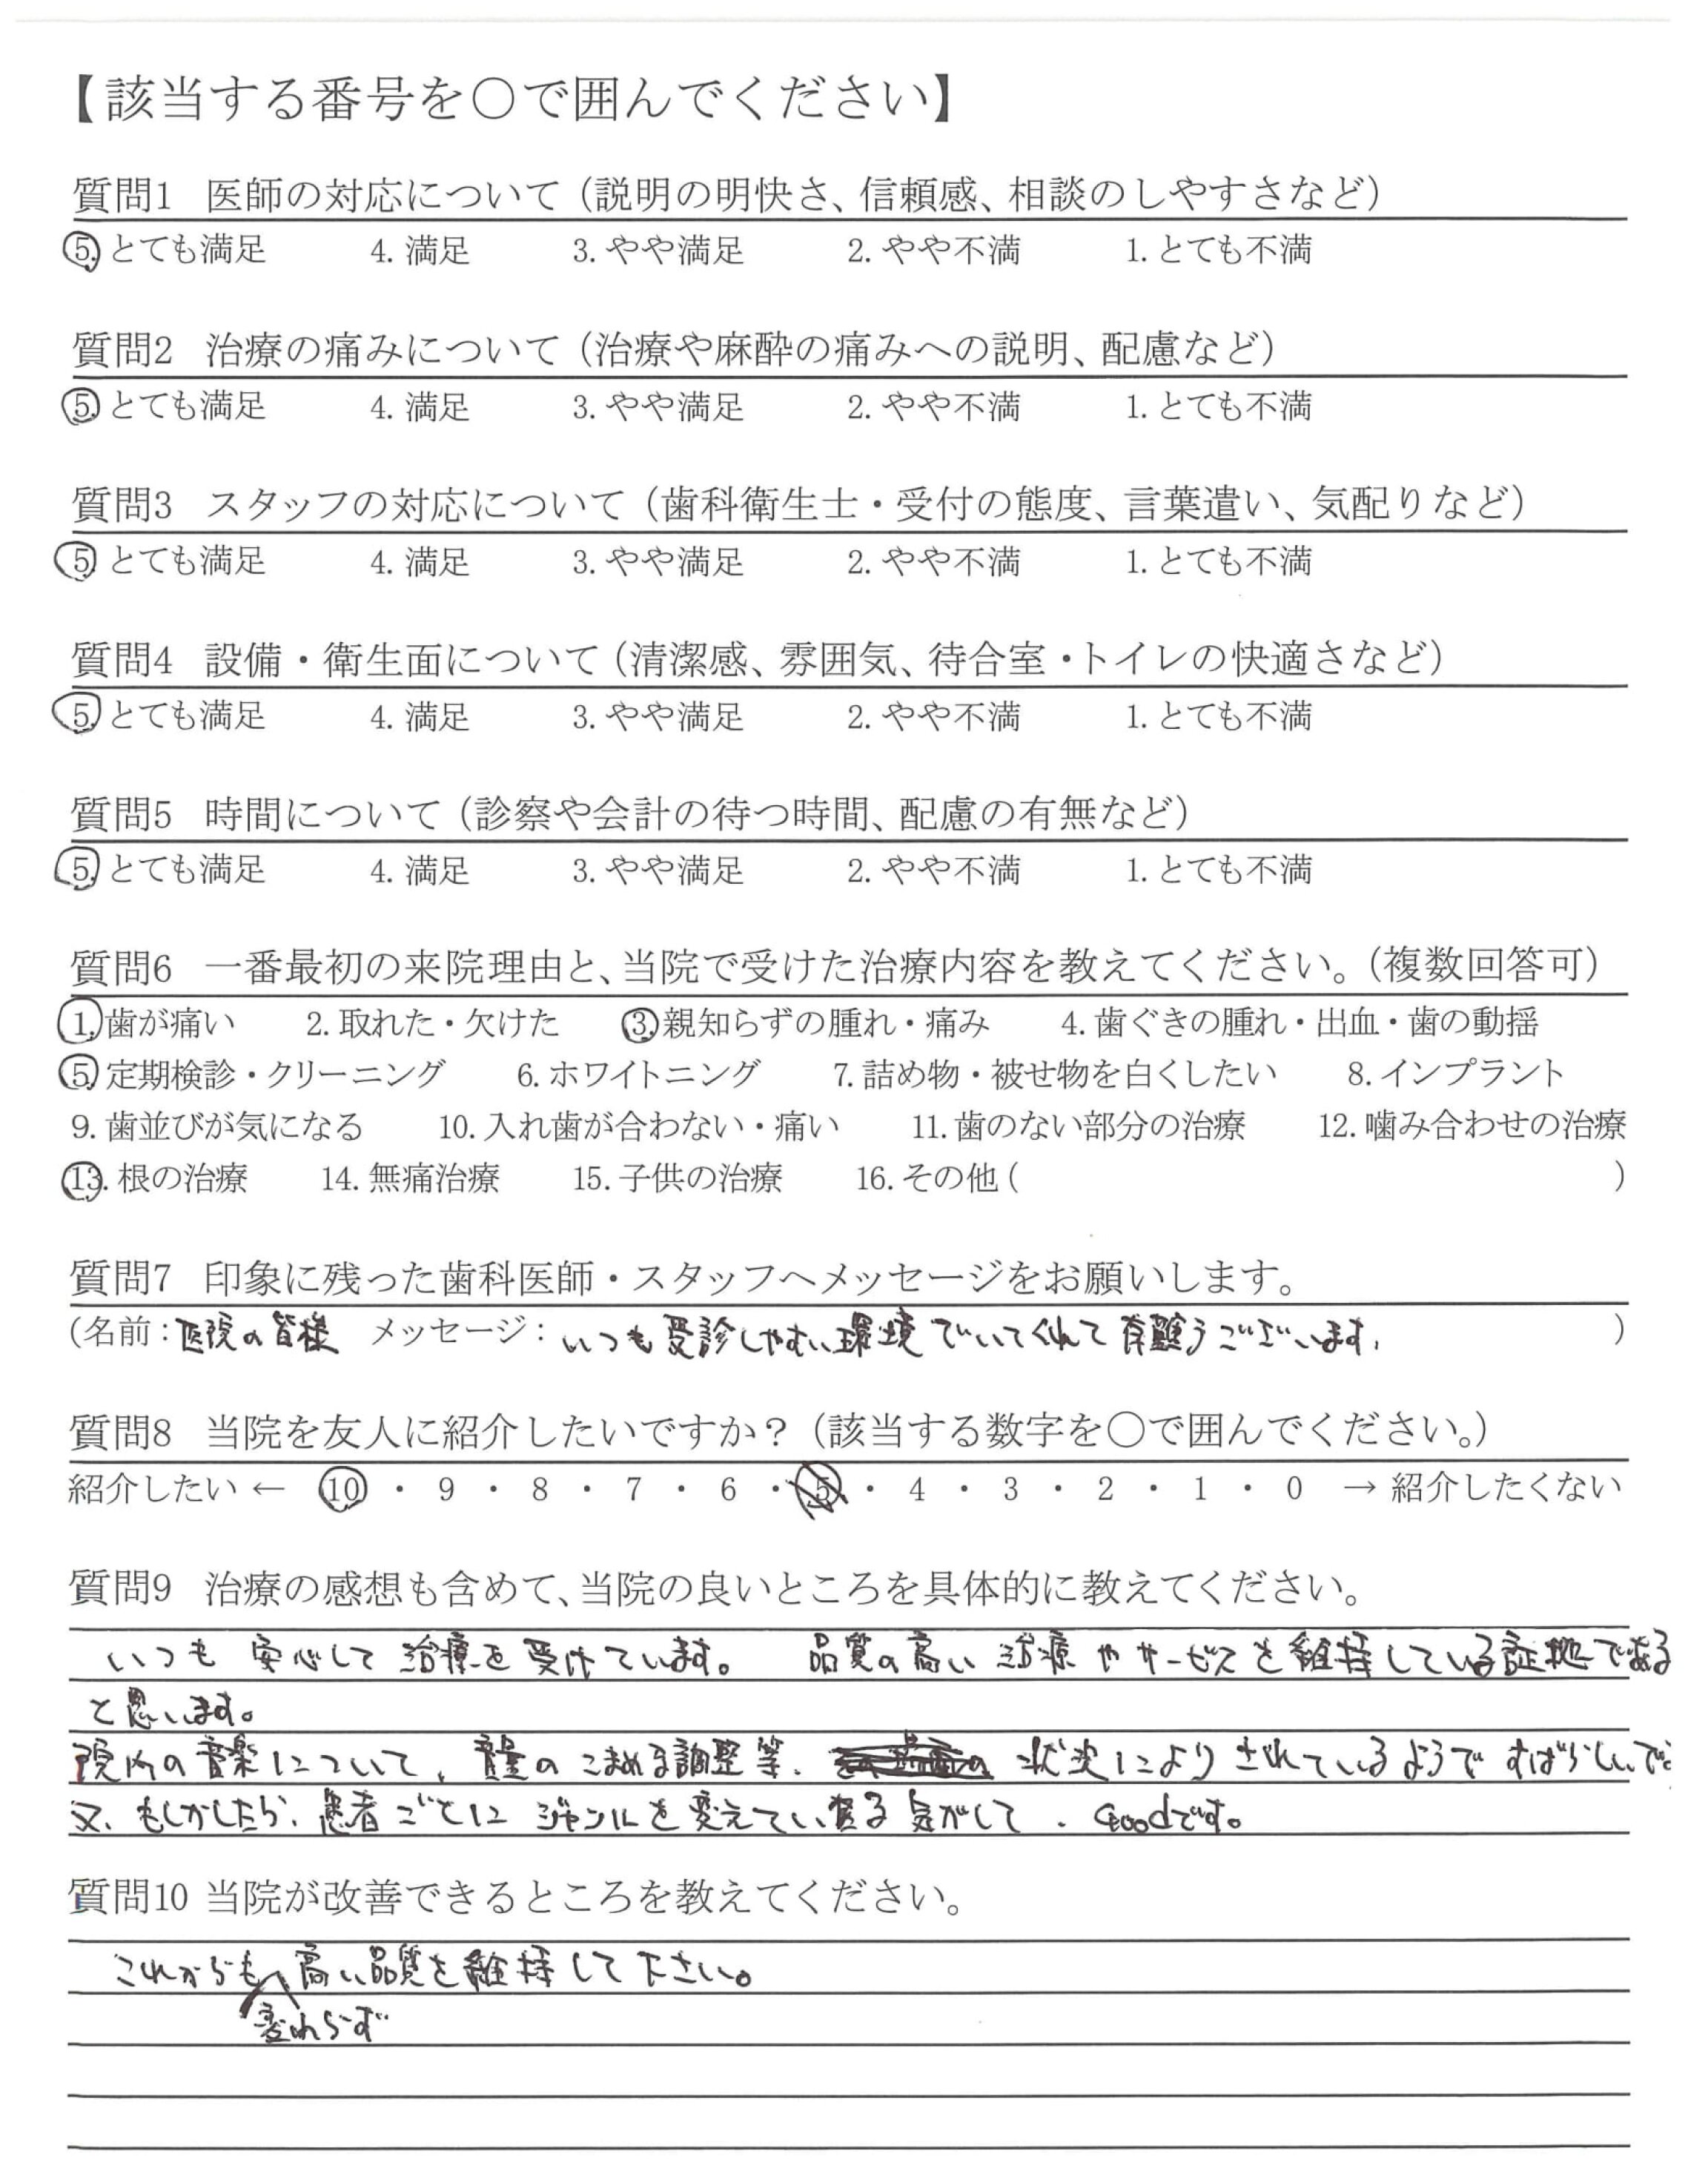 【該当する番号を〇で囲んでください】
質問1 医師の対応について（説明の明快さ、信頼感、相談のしやすさなど）
5. とても満足 4. 満足 3. やや満足 2. やや不満 1. とても不満
質問2 治療の痛みについて（治療や麻酔の痛みへの説明、配慮など）
5. とても満足 4. 満足 3. やや満足 2. やや不満 1. とても不満
質問3 スタッフの対応について（歯科衛生士・受付の態度、言葉遣い、気配りなど）
5 とても満足 4. 満足 3. やや満足 2. やや不満 1. とても不満
質問4 設備・衛生面について（清潔感、雰囲気、待合室・トイレの快適さなど）
5. とても満足 4. 満足 3. やや満足 2. やや不満 1. とても不満
質問5 時間について（診察や会計の待つ時間、配慮の有無など）
5. とても満足 4. 満足 3. やや満足 2. やや不満 1. とても不満
質問6 一番最初の来院理由と、当院で受けた治療内容を教えてください。（複数回答可）
1. 歯が痛い 2. 取れた・欠けた 3. 親知らずの腫れ・痛み 4. 歯ぐきの腫れ・出血・歯の動揺
5. 定期検診・クリーニング 6. ホワイトニング 7. 詰め物・被せ物を白くしたい 8. インプラント
9. 歯並びが気になる 10. 入れ歯が合わない・痛い 11. 歯のない部分の治療 12. 噛み合わせの治療
13. 根の治療 14. 無痛治療 15. 子供の治療 16. その他（ ）
質問7 印象に残った歯科医師・スタッフへメッセージをお願いします。
（名前：医院の皆様 メッセージ：いつも受診しやすい環境でいてくれて有難うございます。 ）
質問8 当院を友人に紹介したいですか？（該当する数字を〇で囲んでください。）
紹介したい ← 10 ・ 9 ・ 8 ・ 7 ・ 6 ・ 5 ・ 4 ・ 3 ・ 2 ・ 1 ・ 0 → 紹介したくない
質問9 治療の感想も含めて、当院の良いところを具体的に教えてください。
いつも安心して治療を受けています。 品質の高い治療やサービスを維持している証拠である
と思います。
院内の音楽について、音量のこまめな調整等、状況によりされているようですばらしいです
又、もしかしたら、患者ごとにジャンルを変えている気がして、Goodです。
質問10 当院が改善できるところを教えてください。
これからも、高い品質を維持して下さい。
変わらず